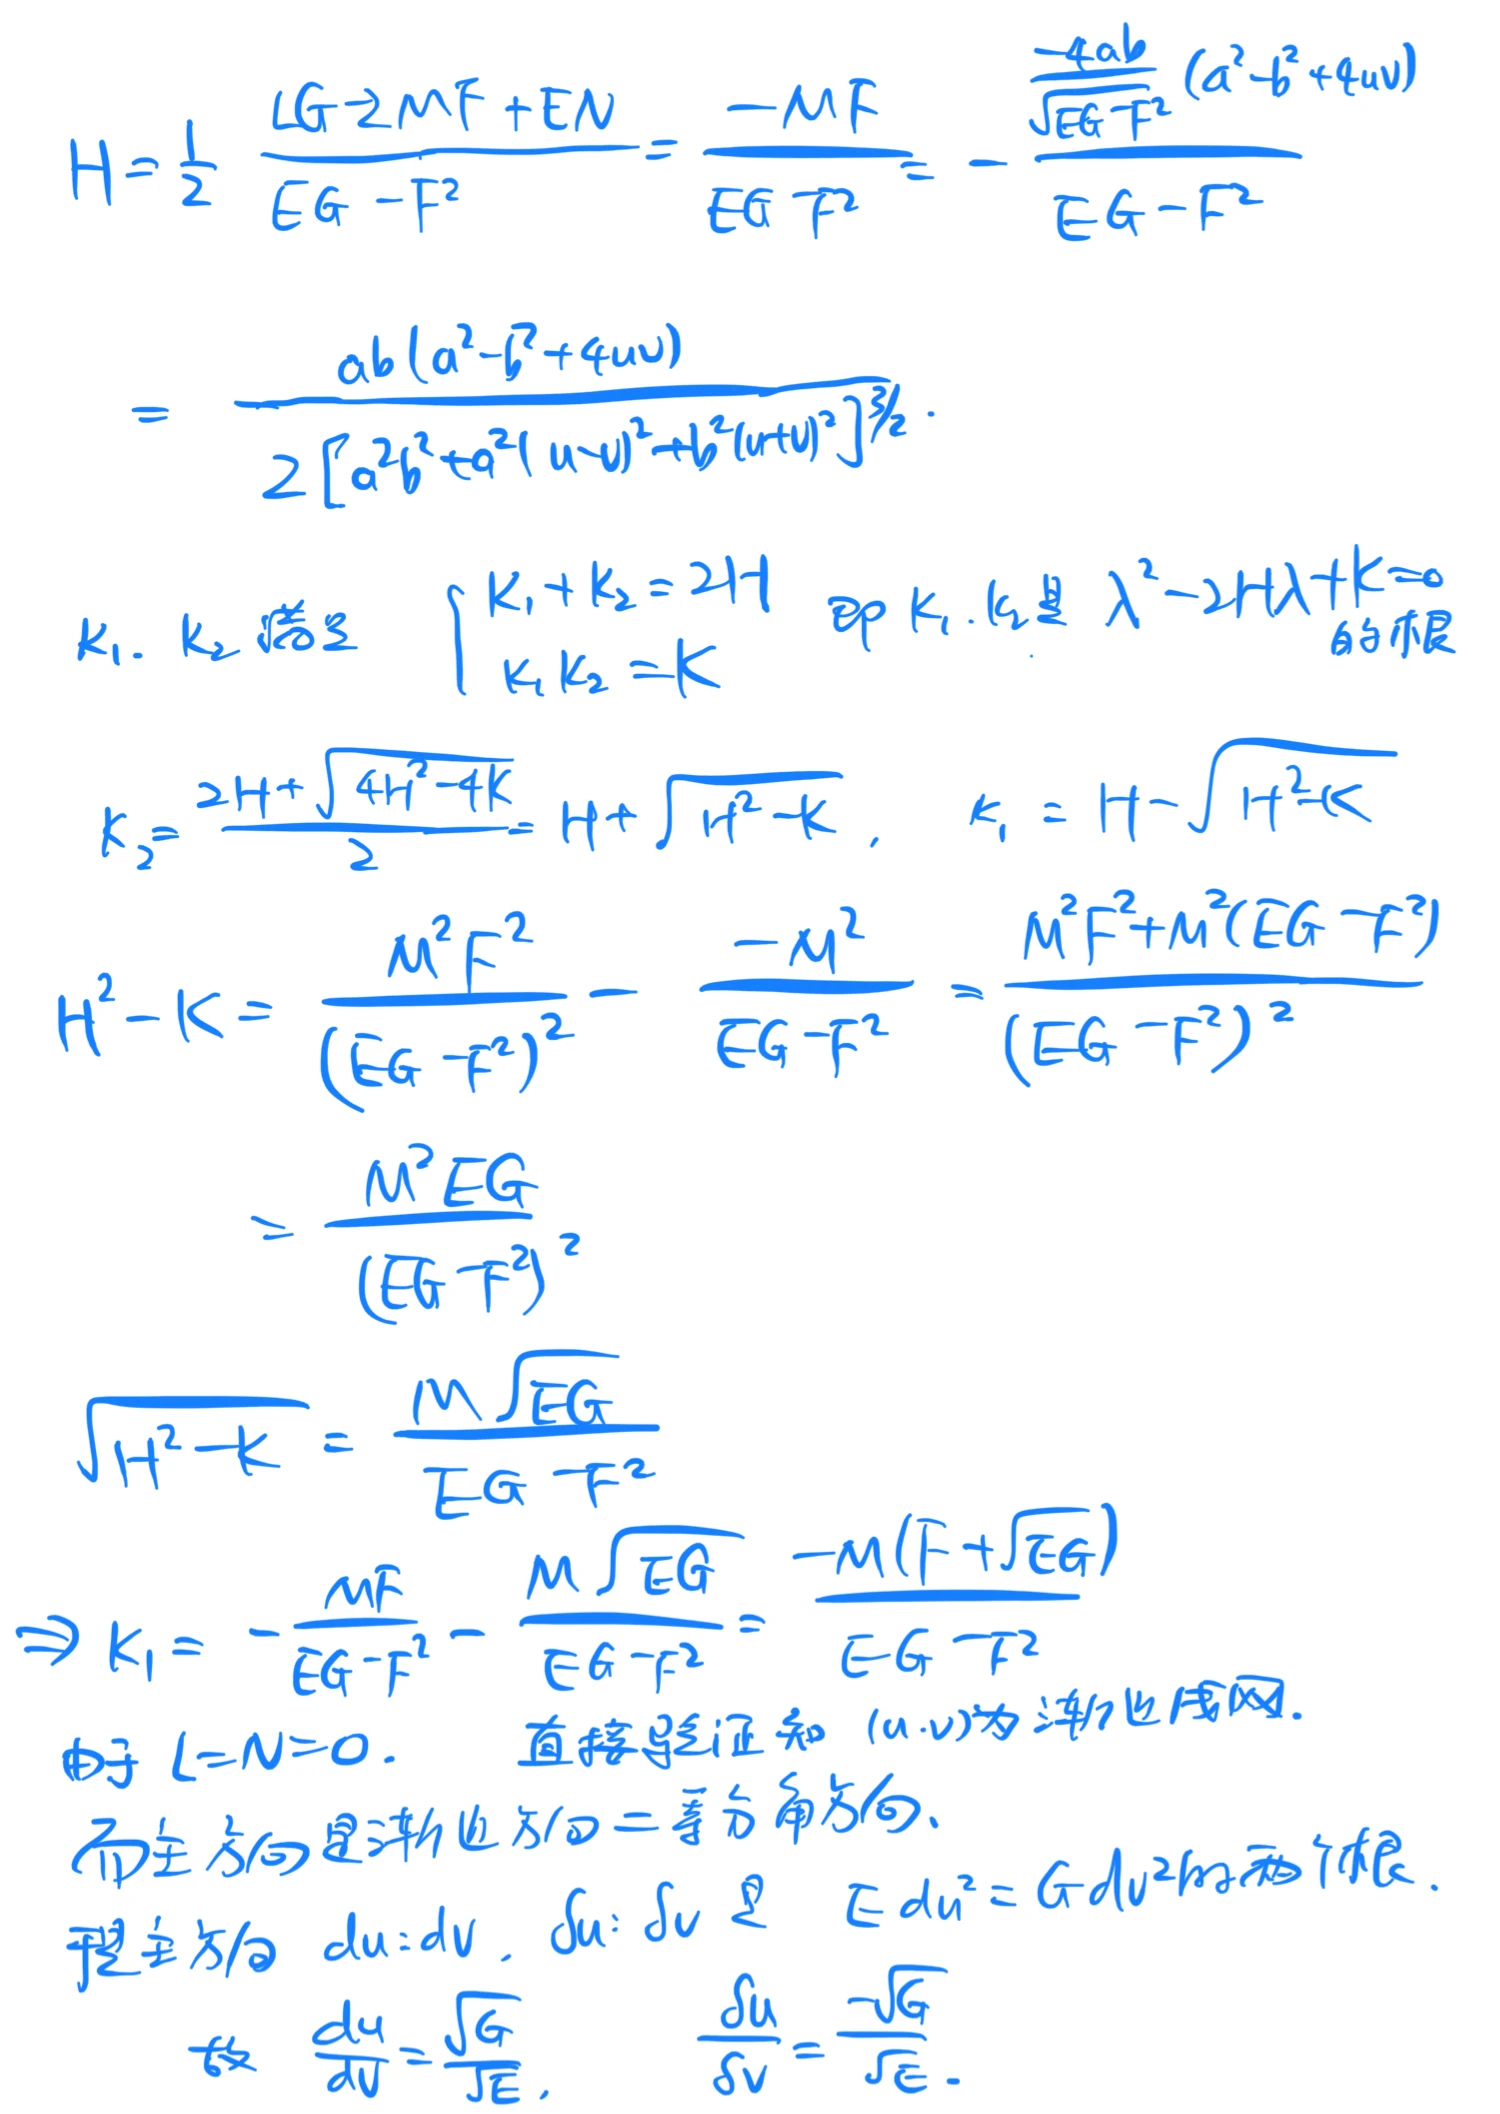 H = \frac{1}{2} \frac{LG-2MF+EN}{EG-F^2} = \frac{-MF}{EG-F^2} = - \frac{\frac{-4ab}{\sqrt{EG-F^2}}(a^2-b^2+4uv)}{EG-F^2}
= \frac{ab(a^2-b^2+4uv)}{2[a^2b^2+a^2(u-v)^2+b^2(u+v)^2]^{3/2}}.
K_1. K_2 满足 { K_1+K_2=2H  K_1K_2=K 即 K_1.K_2是 λ^2-2Hλ+K=0 的根
K_2 = \frac{2H+\sqrt{4H^2-4K}}{2} = H+\sqrt{H^2-K}, K_1 = H-\sqrt{H^2-K}
H^2-K = \frac{M^2F^2}{(EG-F^2)^2} - \frac{-M^2}{EG-F^2} = \frac{M^2F^2+M^2(EG-F^2)}{(EG-F^2)^2}
= \frac{M^2EG}{(EG-F^2)^2}
\sqrt{H^2-K} = \frac{M\sqrt{EG}}{EG-F^2}
⇒ K_1 = -\frac{MF}{EG-F^2} - \frac{M\sqrt{EG}}{EG-F^2} = \frac{-M(F+\sqrt{EG})}{EG-F^2}
由于 L=N=0. 直接验证知 (u.v)为渐近线网.
而主方向是渐近方向二等分角方向、
主方向 du:dv, δu:δv 是 Edu^2=Gdv^2的两个根.
故 \frac{du}{dv} = \frac{\sqrt{G}}{\sqrt{E}}, \frac{δu}{δv} = \frac{-\sqrt{G}}{\sqrt{E}}.